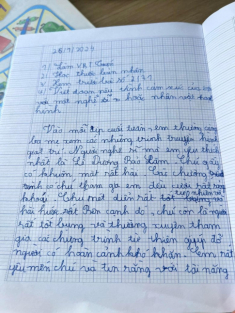 25/9/2023
1/ Làm VBT Toán
2/ Học thuộc bảng nhân
3/ Xem trước bài
4/ Viết đoạn này tình cảm xúc của em
với một nghệ sĩ hoặc nhân vật hoạt
hình
Vào mỗi dịp cuối tuần, em thường cùng
ba mẹ xem các chương trình truyền hình
giải trí. Người nghệ sĩ mà em yêu thích
nhất là Lê Dương Bảo Lâm. Chú ấy
có khuôn mặt rất hài. Các chương
trình có chú tham gia em đều cười rất
khoái. Chú một diễn rất
hài hước rất Bên cạnh đó, chú còn là người
rất tốt bụng và thường xuyên tham
gia các chương trình từ thiện giúp đỡ
người có hoàn cảnh khó khăn. Em rất
yêu mến chú và tin rằng với tài năng